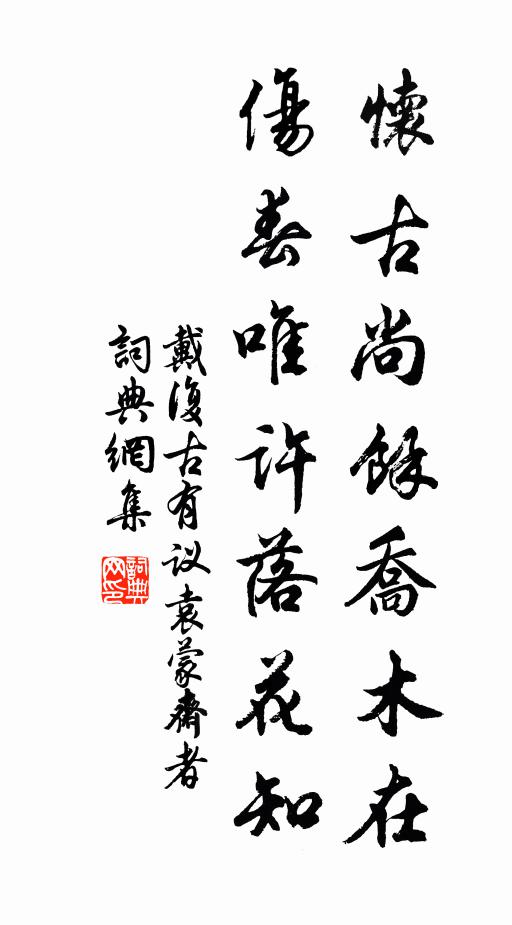 懷古尚餘喬木在
傷春唯許落花知
戴復古有议袁蒙齋者
詞典網集
詞典网印